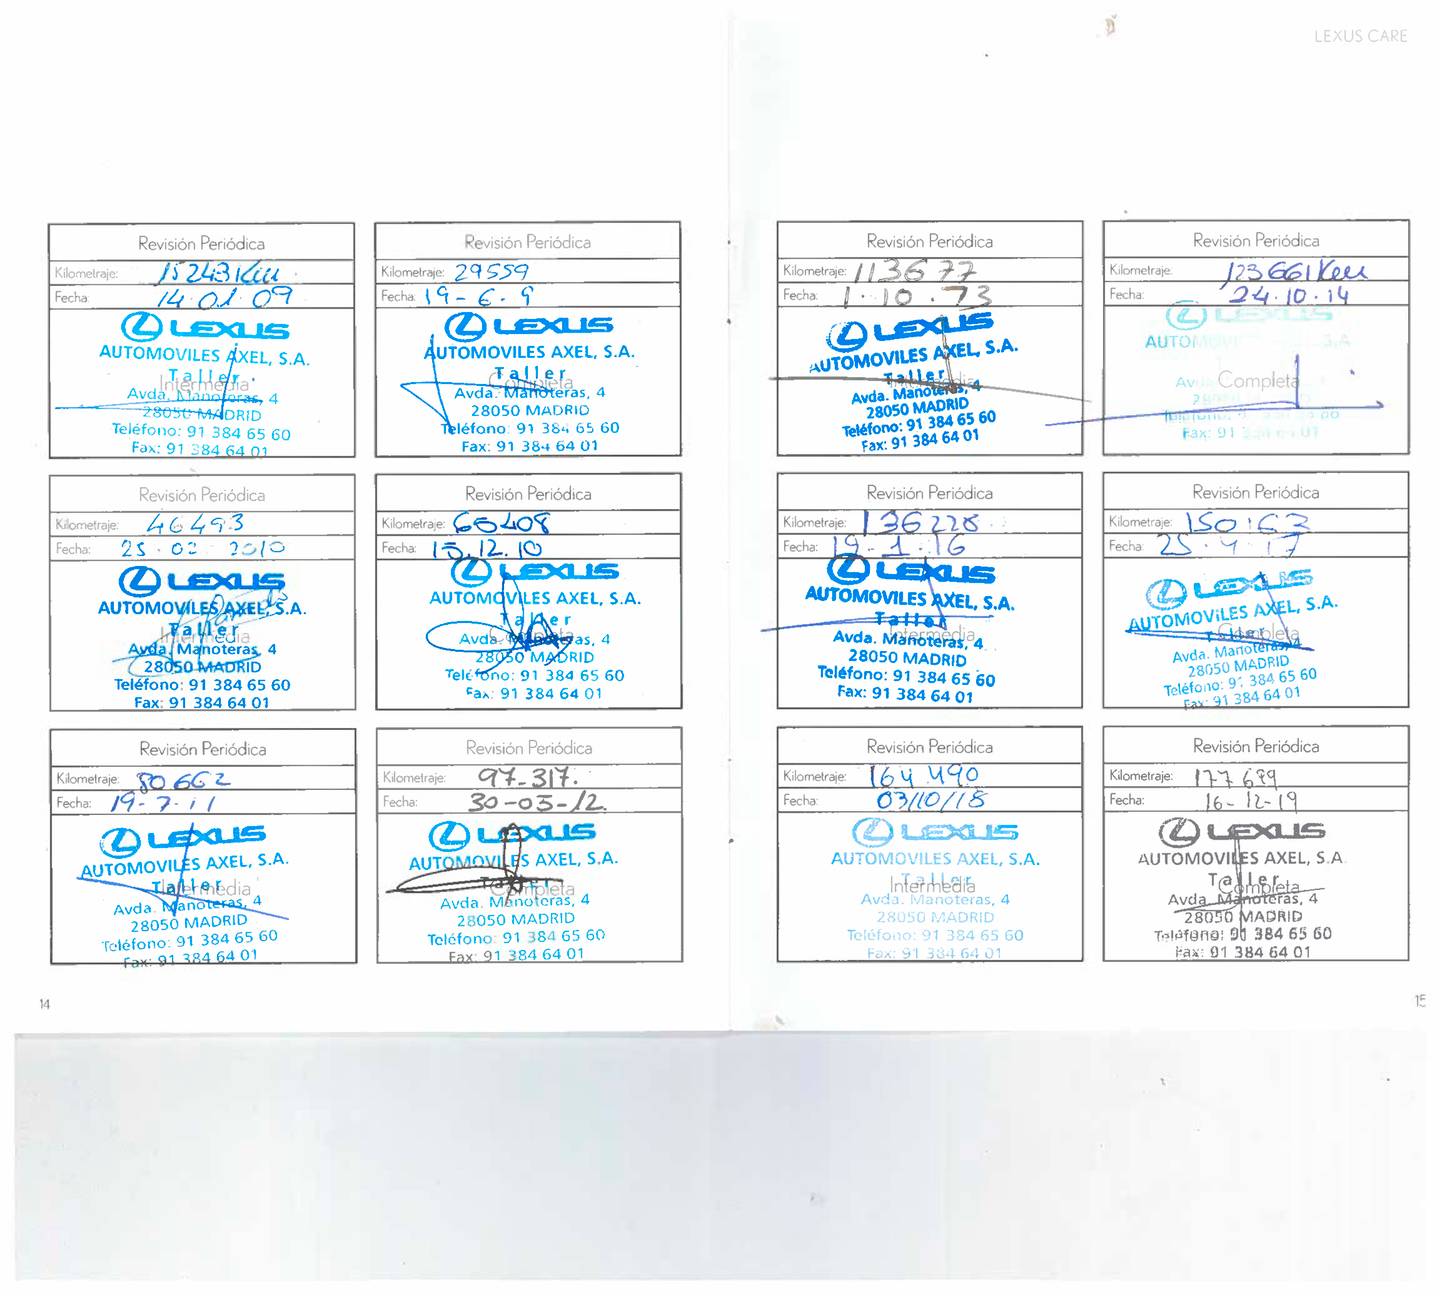 LEXUS CARE
Revisión Periódica
Kilometraje: 15243 Km
Fecha: 14.01.09
LEXUS
AUTOMOVILES AXEL, S.A.
Taller
Intermedia
Avda. Manoteras, 4
28050 MADRID
Teléfono: 91 384 65 60
Fax: 91 384 64 01
Revisión Periódica
Kilometraje: 29559
Fecha: 19-6-9
LEXUS
AUTOMOVILES AXEL, S.A.
Taller
Completa
Avda. Manoteras, 4
28050 MADRID
Teléfono: 91 384 65 60
Fax: 91 384 64 01
Revisión Periódica
Kilometraje: 46493
Fecha: 25.02 2010
LEXUS
AUTOMOVILES AXEL, S.A.
Taller
Intermedia
Avda. Manoteras, 4
28050 MADRID
Teléfono: 91 384 65 60
Fax: 91 384 64 01
Revisión Periódica
Kilometraje: 65408
Fecha: 15.12.10
LEXUS
AUTOMOVILES AXEL, S.A.
Taller
Completa
Avda. Manoteras, 4
28050 MADRID
Teléfono: 91 384 65 60
Fax: 91 384 64 01
Revisión Periódica
Kilometraje: 80662
Fecha: 19-7-11
LEXUS
AUTOMOVILES AXEL, S.A.
Taller
Intermedia
Avda. Manoteras, 4
28050 MADRID
Teléfono: 91 384 65 60
Fax: 91 384 64 01
Revisión Periódica
Kilometraje: 97-317.
Fecha: 30-03-12.
LEXUS
AUTOMOVILES AXEL, S.A.
Taller
Completa
Avda. Manoteras, 4
28050 MADRID
Teléfono: 91 384 65 60
Fax: 91 384 64 01
14
Revisión Periódica
Kilometraje: 113677
Fecha: 1.10.13
LEXUS
AUTOMOVILES AXEL, S.A.
Taller
Intermedia
Avda. Manoteras, 4
28050 MADRID
Teléfono: 91 384 65 60
Fax: 91 384 64 01
Revisión Periódica
Kilometraje: 123661 Km
Fecha: 24.10.14
LEXUS
Completa
Fax: 91
Revisión Periódica
Kilometraje: 136228
Fecha: 19-1-16
LEXUS
AUTOMOVILES AXEL, S.A.
Taller
Intermedia
Avda. Manoteras, 4
28050 MADRID
Teléfono: 91 384 65 60
Fax: 91 384 64 01
Revisión Periódica
Kilometraje: 150163
Fecha: 25.4.17
LEXUS
AUTOMOVILES AXEL, S.A.
Taller
Completa
Avda. Manoteras, 4
28050 MADRID
Teléfono: 91 384 65 60
Fax: 91 384 64 01
Revisión Periódica
Kilometraje: 164.490
Fecha: 03/10/18
LEXUS
AUTOMOVILES AXEL, S.A.
Taller
Intermedia
Avda. Manoteras, 4
28050 MADRID
Teléfono: 91 384 65 60
Fax: 91 384 64 01
Revisión Periódica
Kilometraje: 177689
Fecha: 16-12-19
LEXUS
AUTOMOVILES AXEL, S.A.
Taller
Completa
Avda. Manoteras, 4
28050 MADRID
Teléfono: 91 384 65 60
Fax: 91 384 64 01
15